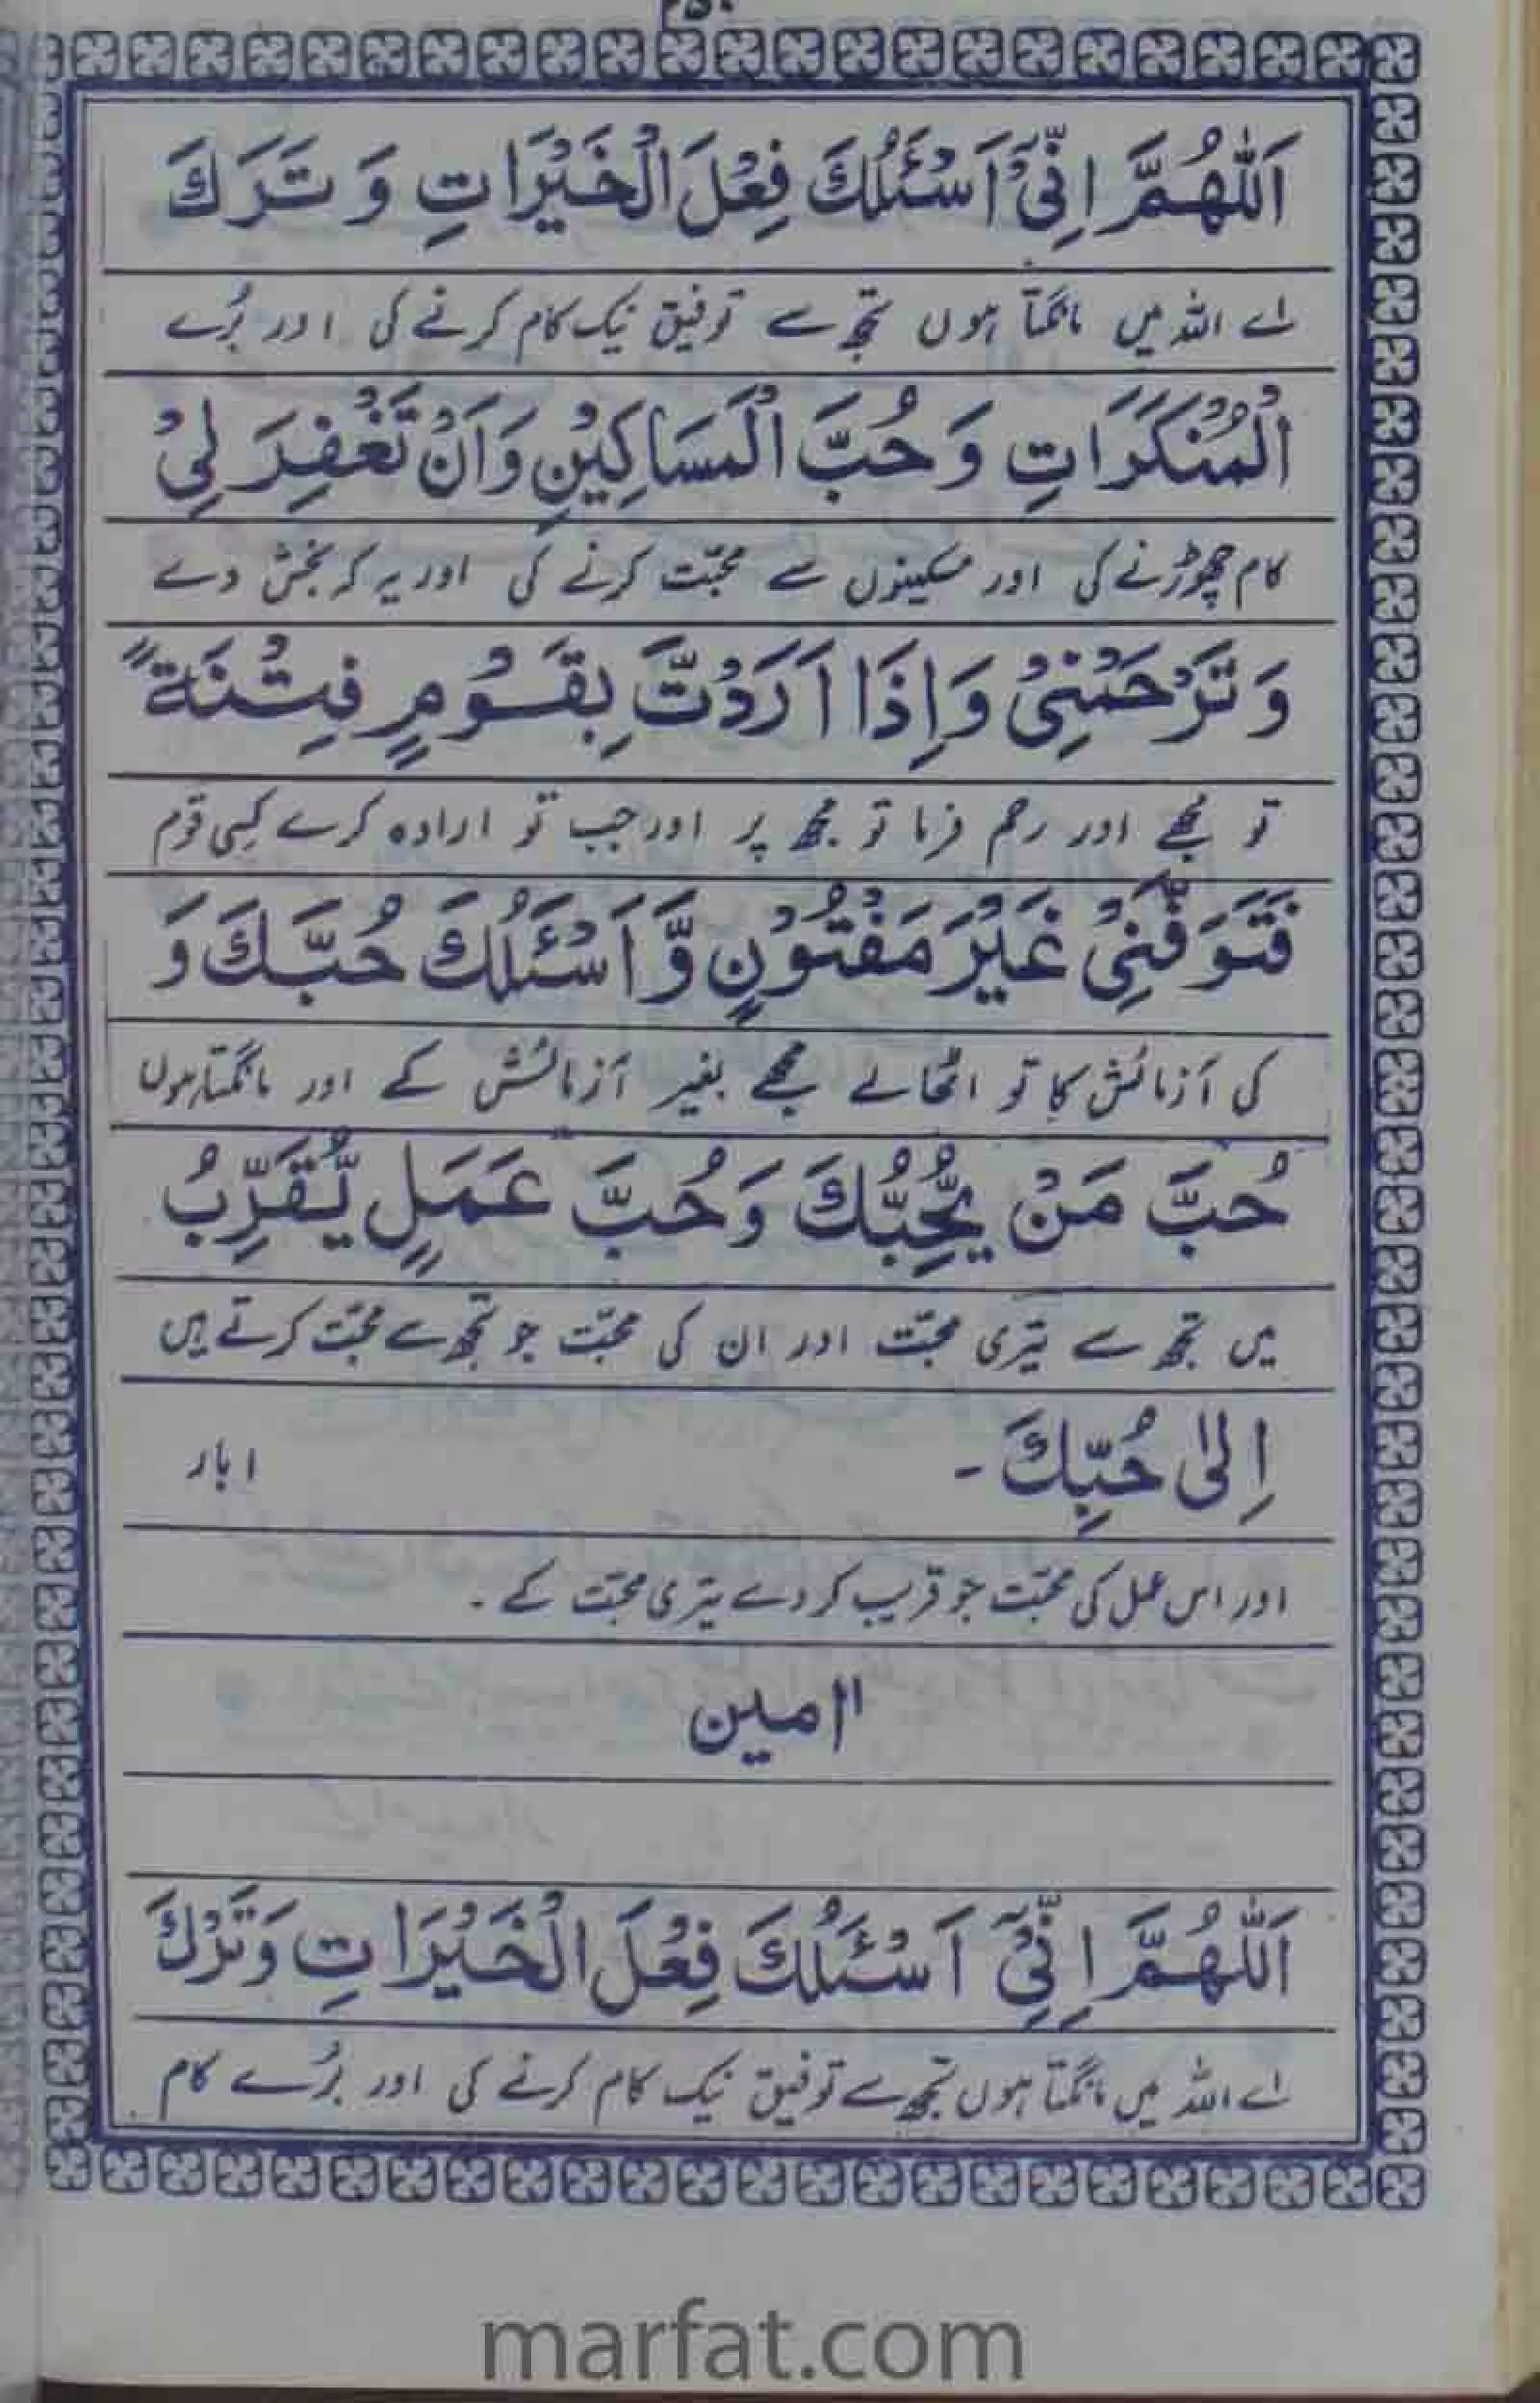 اَللّٰهُمَّ اِنِّیْۤ اَسْئَلُكَ فِعْلَ الْخَيْرَاتِ وَ تَرَكَ
اے اللہ میں مانگتا ہوں تجھ سے توفیق نیک کام کرنے کی اور بُرے
الْمُنْكَرَاتِ وَ حُبَّ الْمَسَاكِيْنِ وَاَنْ تَغْفِرَ لِیْ
کام چھوڑنے کی اور مسکینوں سے محبّت کرنے کی اور یہ کہ بخش دے
وَ تَرْحَمْنِیْ وَاِذَا اَرَدْتَّ بِقَوْمٍ فِتْنَةً
تو مجھے اور رحم فرما تو مجھ پر اور جب تو ارادہ کرے کسی قوم
فَتَوَفَّنِیْ غَيْرَ مَفْتُوْنٍ وَّاَسْئَلُكَ حُبَّكَ وَ
کی آزمائش کا تو اٹھالے مجھے بغیر آزمائش کے اور مانگتا ہوں
حُبَّ مَنْ يُّحِبُّكَ وَحُبَّ عَمَلٍ يُّقَرِّبُ
میں تجھ سے تیری محبّت اور ان کی محبّت جو تجھ سے محبّت کرتے ہیں
اِلٰی حُبِّكَ ۔ ۱ بار
اور اس عمل کی محبّت جو قریب کر دے تیری محبّت کے ۔
اٰمین
اَللّٰهُمَّ اِنِّیْۤ اَسْئَلُكَ فِعْلَ الْخَيْرَاتِ وَتَرْكَ
اے اللہ میں مانگتا ہوں تجھ سے توفیق نیک کام کرنے کی اور بُرے کام
marfat.com